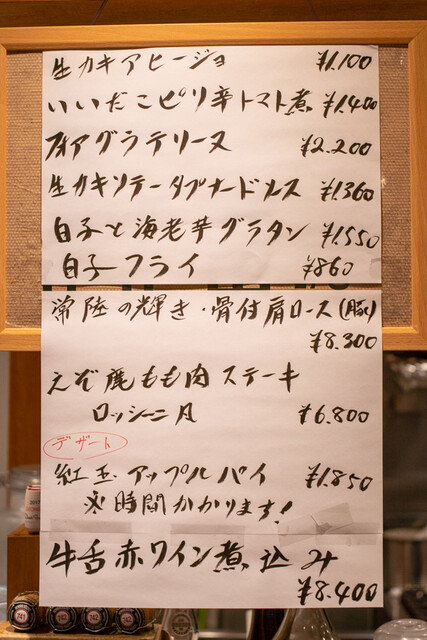 生カキアヒージョ ¥1.100
いいだこピリ辛トマト煮 ¥1.400
フォアグラテリーヌ ¥2.200
生カキソテータプナードソース ¥1.360
白子と海老芋グラタン ¥1.550
白子フライ ¥860
常陸の輝き・骨付肩ロース(豚)
¥8.300
えぞ鹿もも肉ステーキ
ロッシーニ風 ¥6.800
デザート
紅玉アップルパイ ¥1.850
※時間かかります!
牛舌赤ワイン煮込み
¥8.400